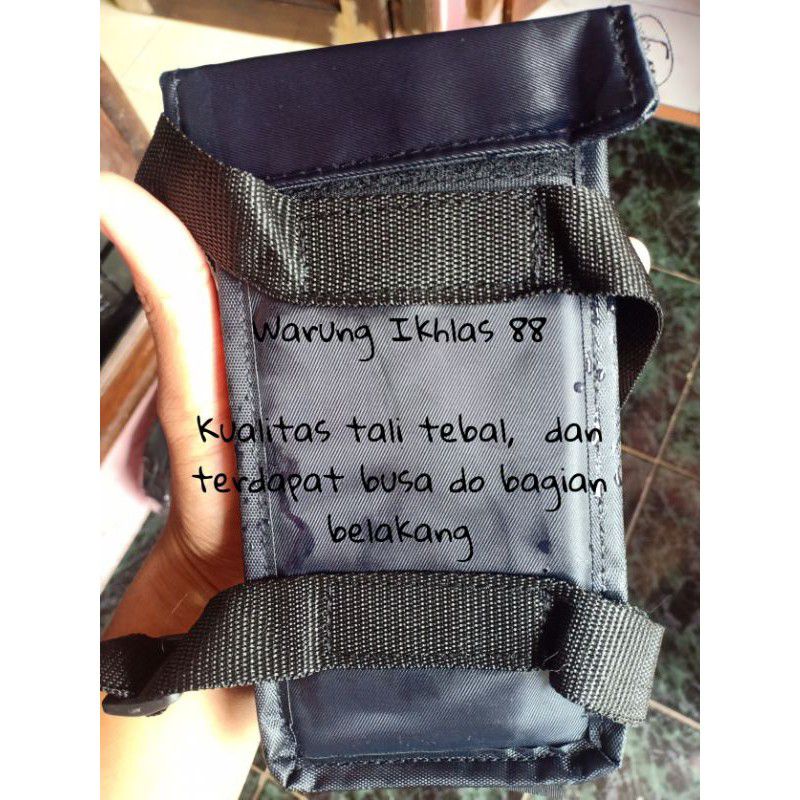 Warung Ikhlas 88
Kualitas tali tebal, dan
terdapat busa do bagian
belakang